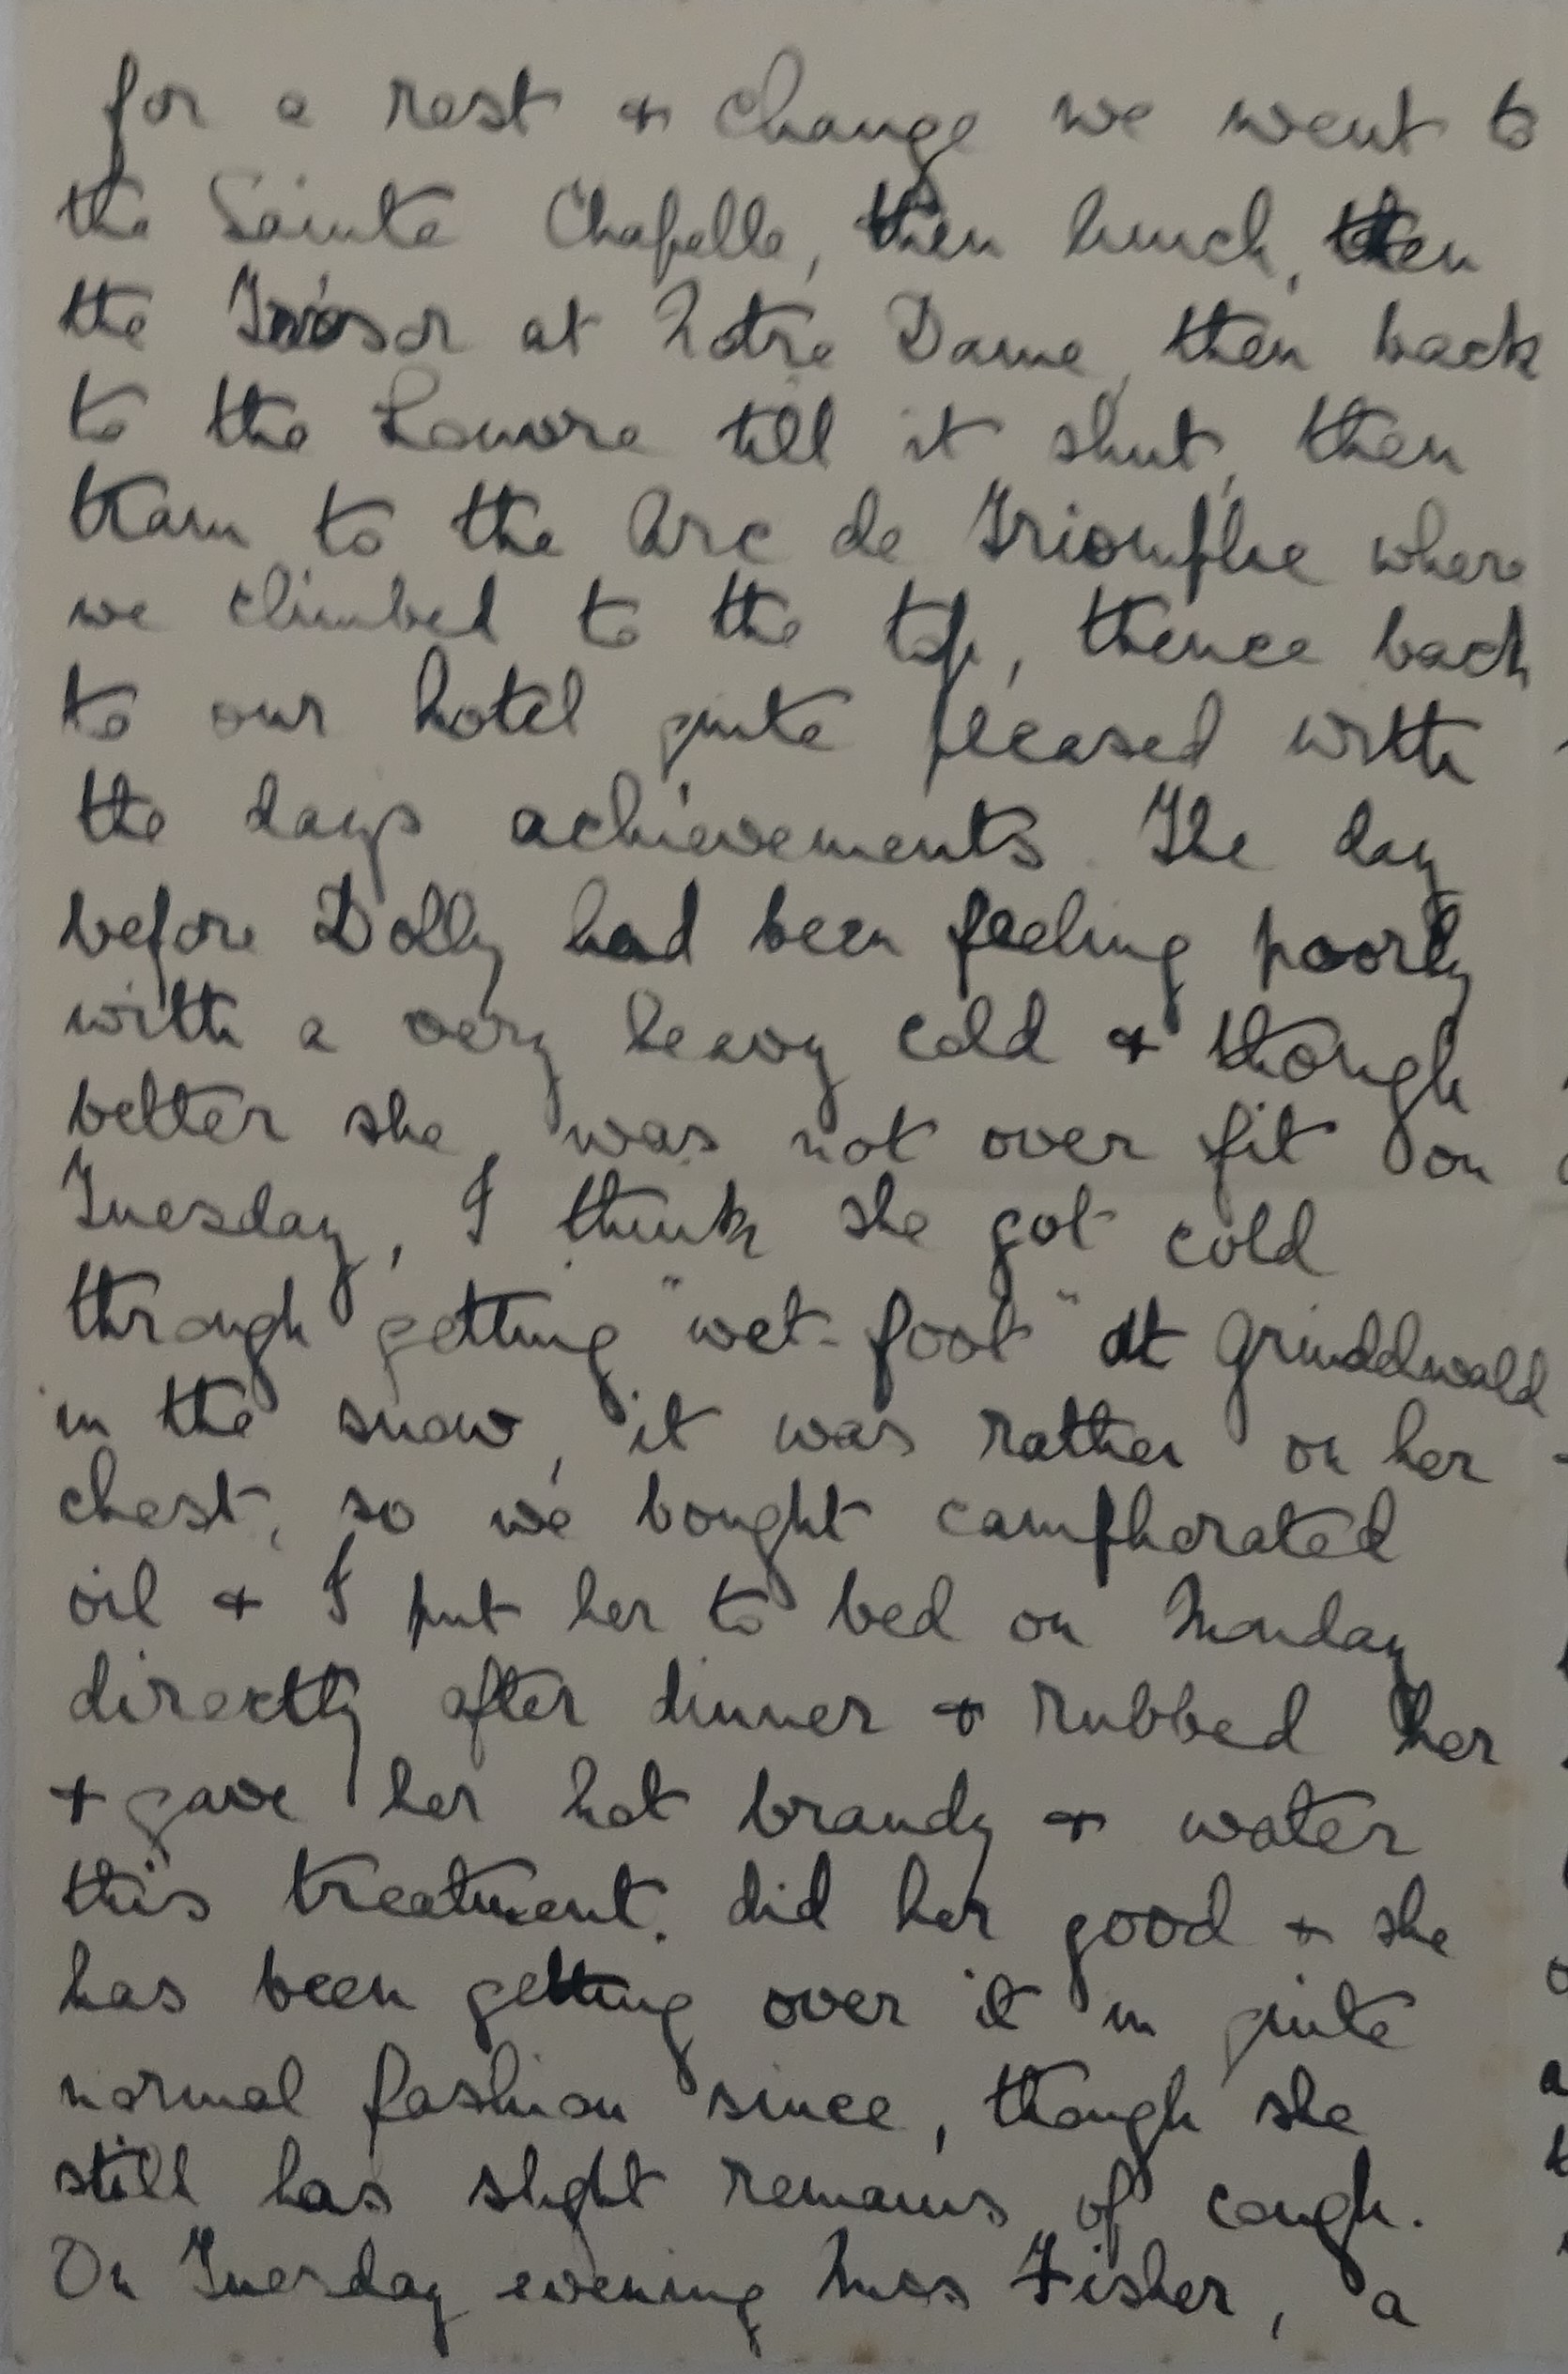 for a rest & change we went to
the Sainte Chapelle, then lunch, then
the Trésor at Notre Dame, then back
to the Louvre till it shut, then
tram to the Arc de Triomphe where
we climbed to the top, thence back
to our hotel quite pleased with
the days achievements. The day
before Dolly had been feeling poorly
with a very heavy cold & though
better she was not over fit on
Tuesday, I think she got cold
through getting "wet-foot" at Grindelwald
in the snow, it was rather on her
chest, so we bought camphorated
oil & I put her to bed on Monday
directly after dinner & rubbed her
& gave her hot brandy & water
this treatment did her good & she
has been getting over it in quite
normal fashion since, though she
still has slight remains of cough.
On Tuesday evening Miss Fisher, a